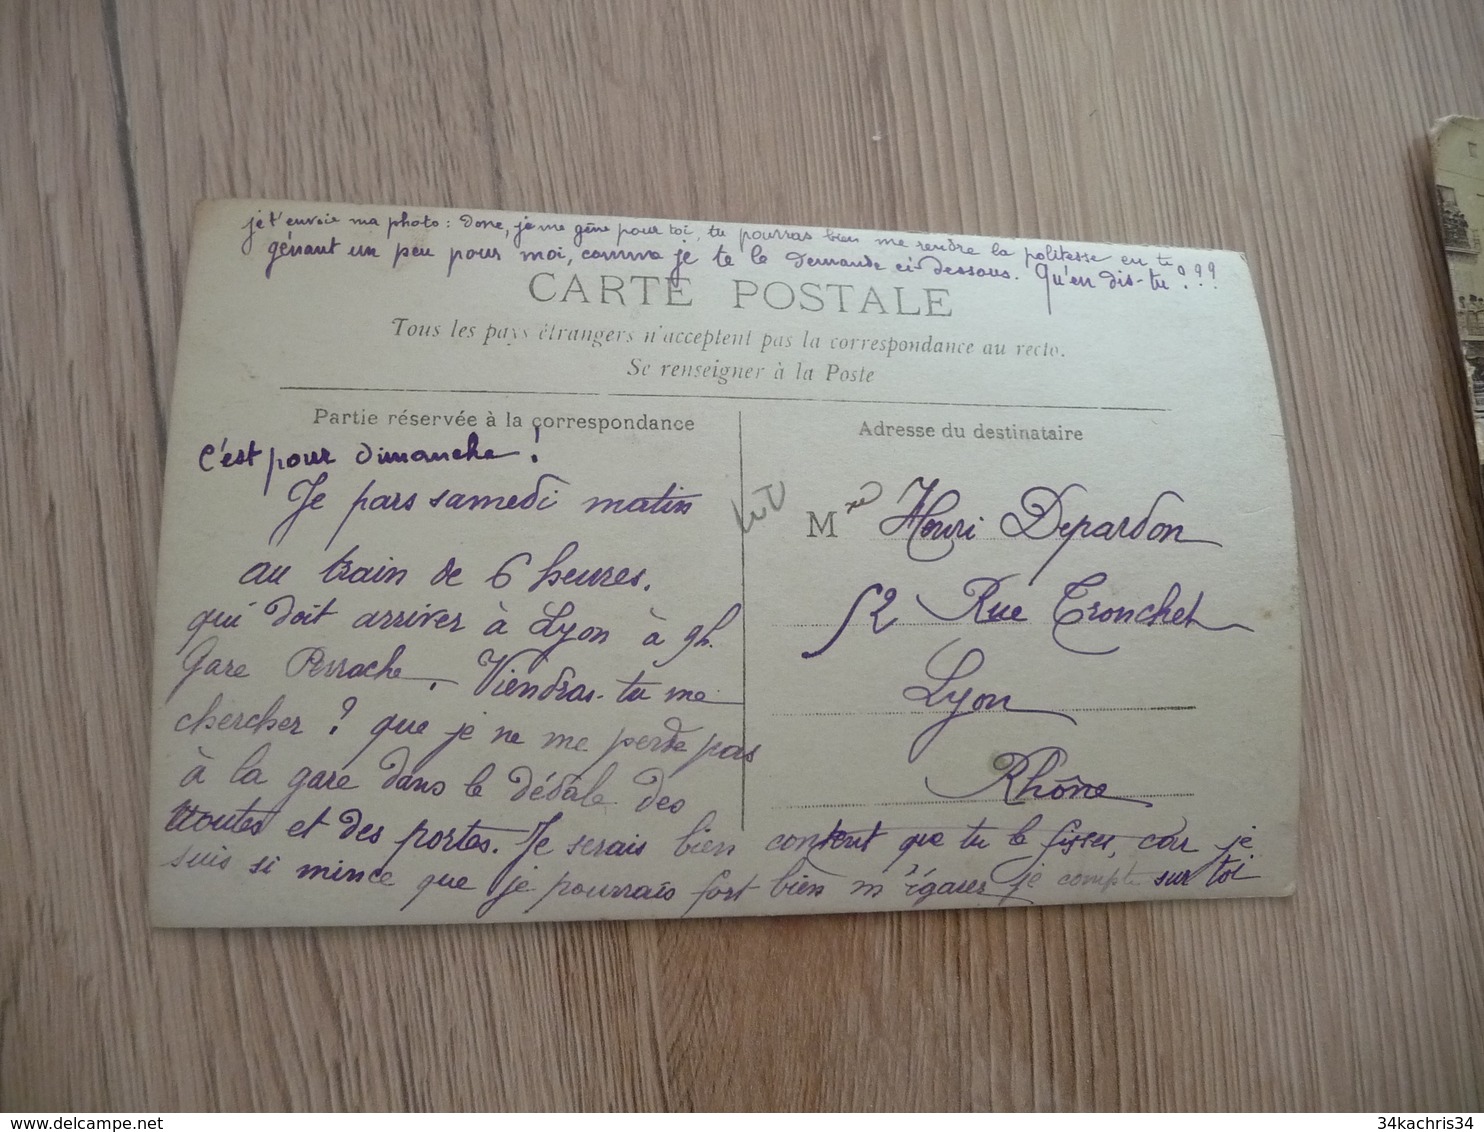 je t'envoie ma photo : Donc, je me gêne pour toi, tu pourras bien me rendre la politesse en te
gênant un peu pour moi, comme je te le demande ci-dessous. Qu'en dis-tu ???
CARTE POSTALE
Tous les pays étrangers n'acceptent pas la correspondance au recto.
Se renseigner à la Poste
Partie réservée à la correspondance
c'est pour Dimanche !
Je pars samedi matin
au train de 6 heures.
qui doit arriver à Lyon à 9h.
Gare Perrache. Viendras-tu me
chercher ? que je ne me perde pas
à la gare dans le dédale des
et des portes. Je serais bien content que tu le fisses, car je
suis si mince que je pourrais fort bien m'égarer je compte sur toi
Adresse du destinataire
M Henri Depardon
52 Rue Tronchet
Lyon
Rhône
34kachris34